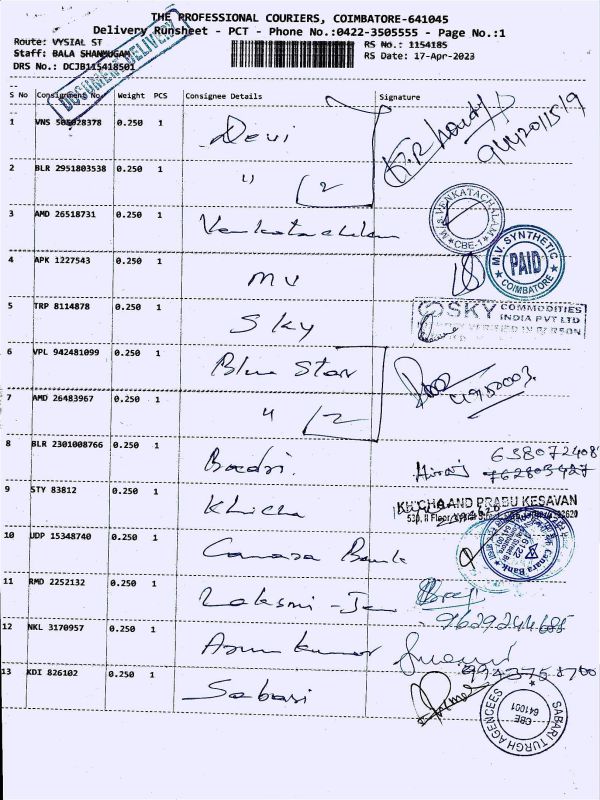 THE PROFESSIONAL COURIERS, COIMBATORE-641045
Delivery Runsheet - PCT - Phone No.:0422-3505555 - Page No.:1
Route: VYSIAL ST
RS No.: 1154185
Staff: BALA SHANMUGAM
RS Date: 17-Apr-2023
DRS No.: DCJB115418501
DOCUMENT DELIVERY
S No Consignment No. Weight PCS Consignee Details Signature
1 VNS 505028378 0.250 1 Devi
9442011519
2 BLR 2951803538 0.250 1 " 2
3 AMD 26518731 0.250 1 Venkatachalam
VENKATACHALAM
* CBE-1 *
4 APK 1227543 0.250 1 MV
M.V. SYNTHETIC
PAID
* COIMBATORE *
5 TRP 8114878 0.250 1 Sky
SKY COMMODITIES
INDIA PVT LTD
VERIFIED IN PERSON
6 VPL 942481099 0.250 1 Blue Star
7 AMD 26483967 0.250 1 " 2
8 BLR 2301008766 0.250 1 Badri.
6380724081
9 STY 83812 0.250 1 Khicha
KHICHA AND PRABU KESAVAN
10 UDP 15348740 0.250 1 Canara Bank
Canara Bank
11 RMD 2252132 0.250 1 Laksmi -
9629244685
12 NKL 3170957 0.250 1 Arun kumar
13 KDI 826102 0.250 1 Sabari
SABARI TURGH AGENCEES
CBE
641001